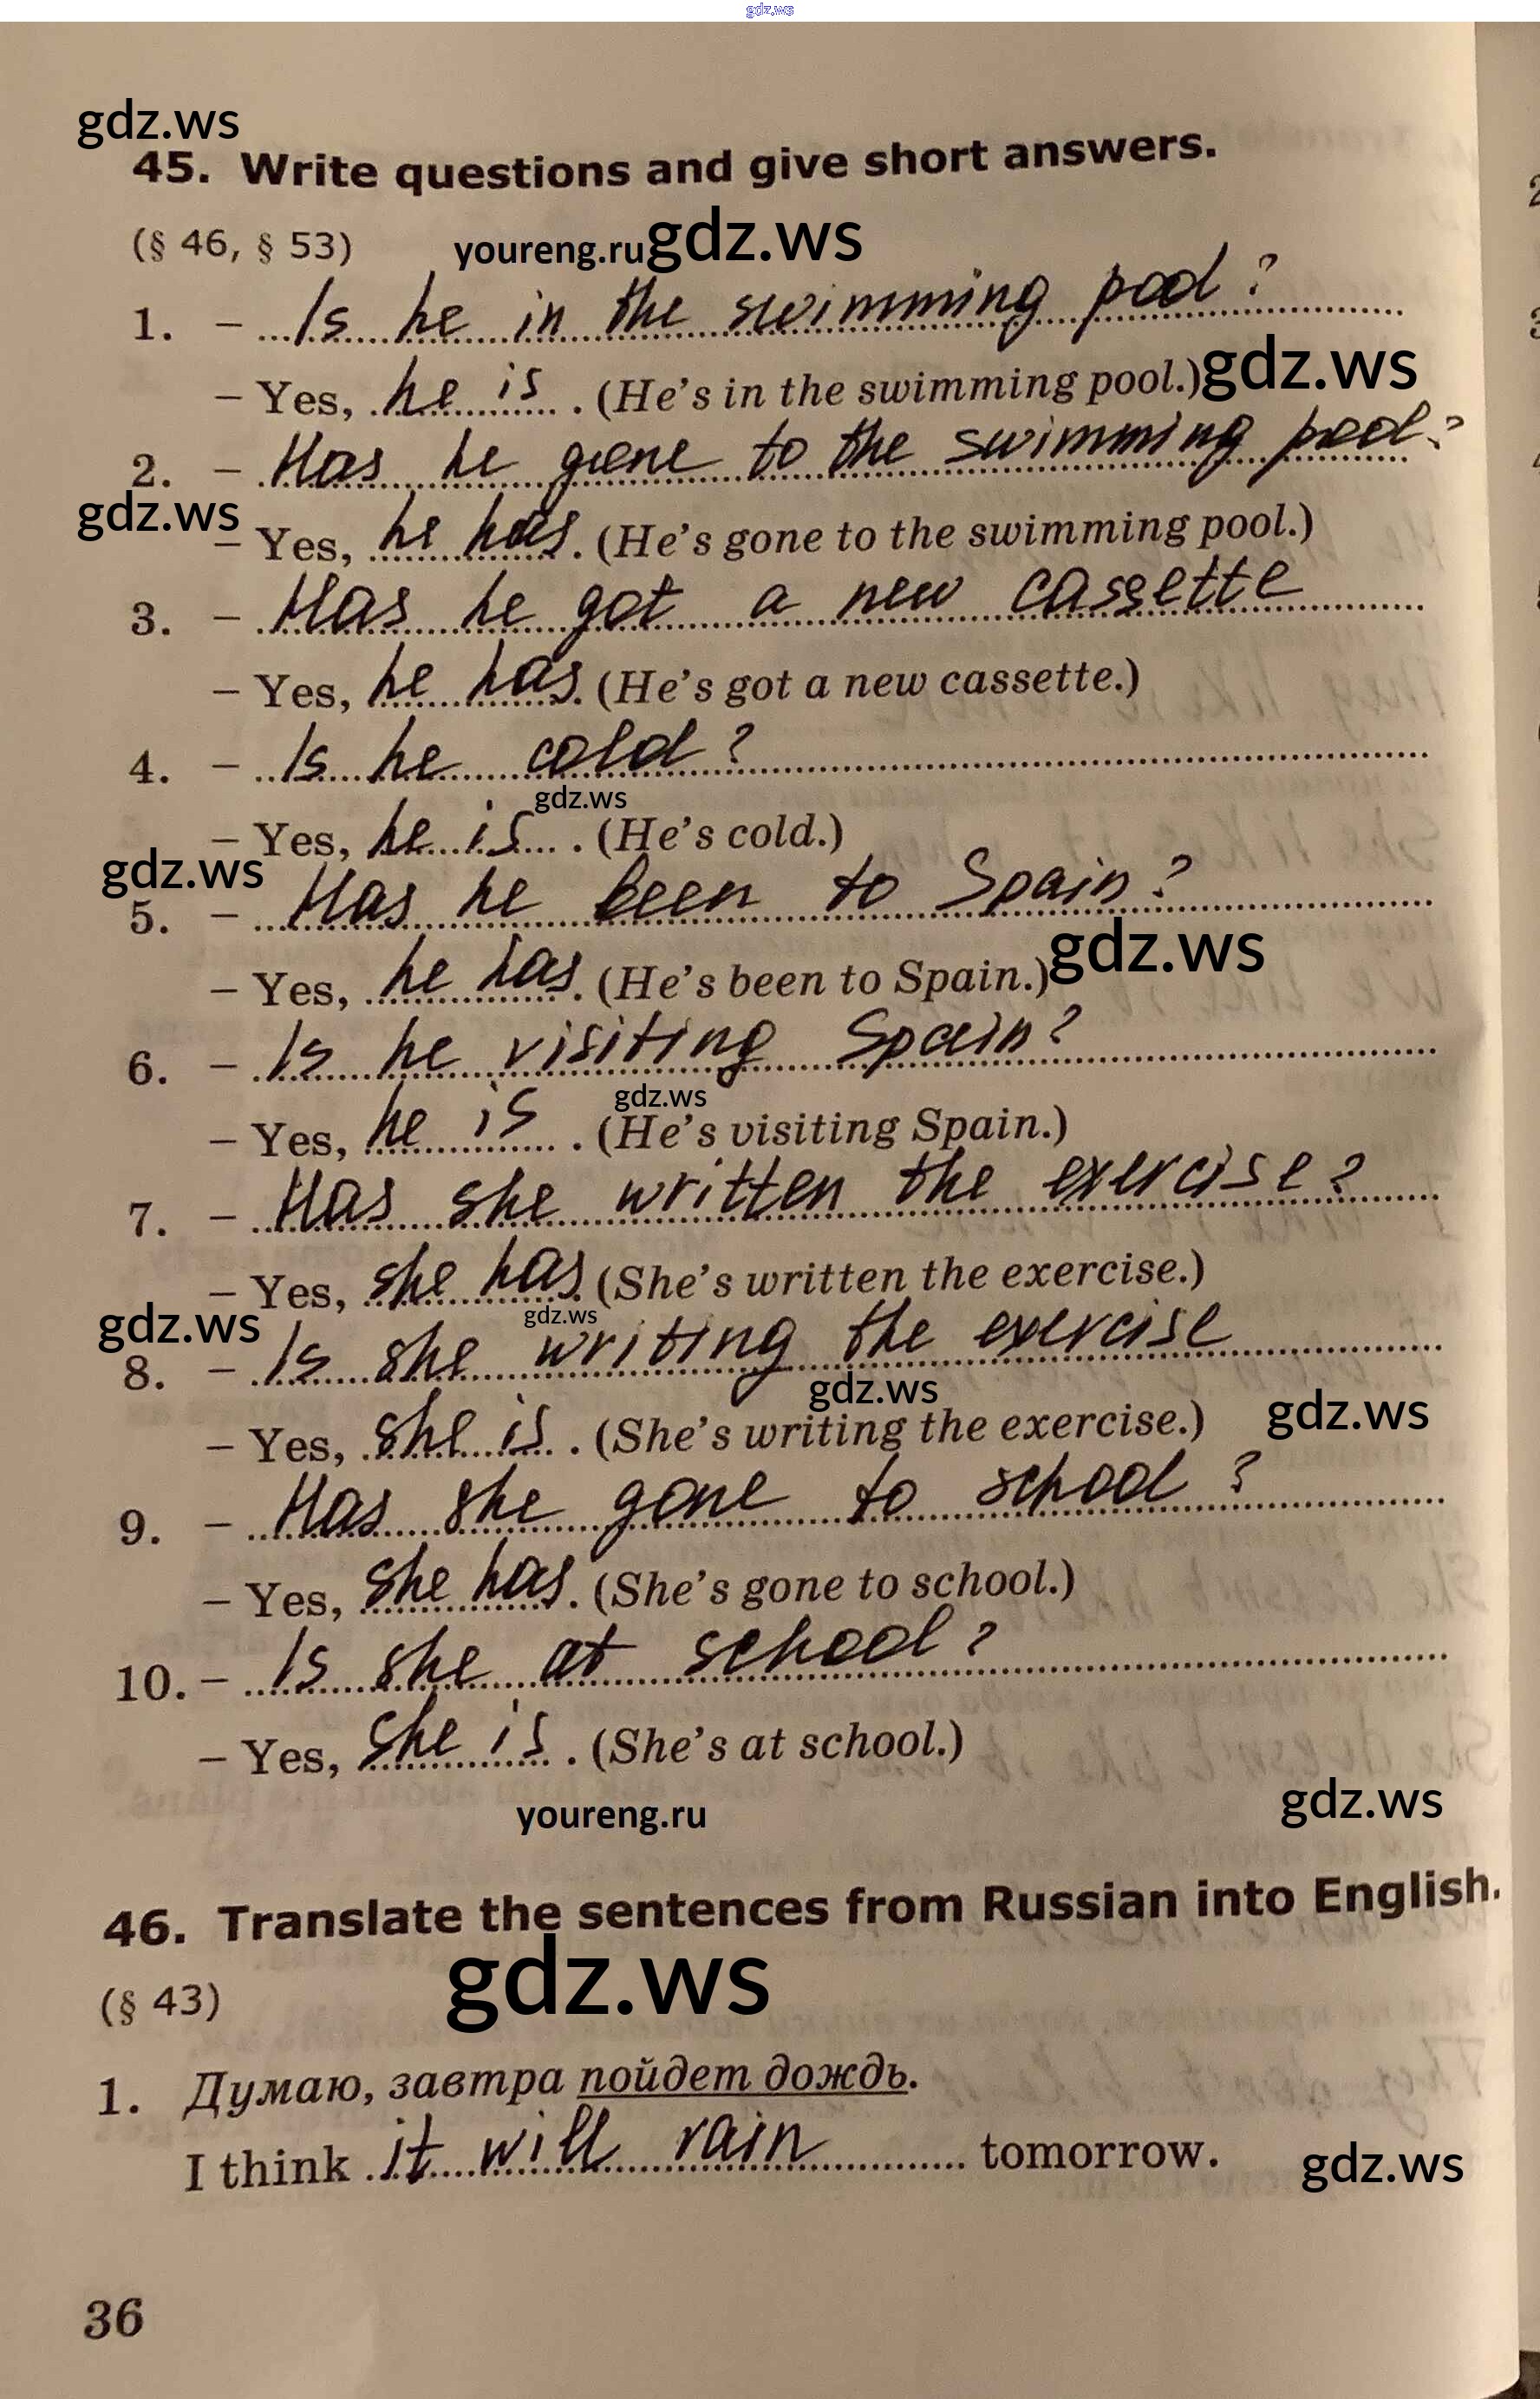 gdz.ws
gdz.ws
45. Write questions and give short answers.
(§ 46, § 53) youreng.ru gdz.ws
1. – Is he in the swimming pool?
– Yes, he is. (He's in the swimming pool.) gdz.ws
2. – Has he gone to the swimming pool?
gdz.ws
– Yes, he has. (He's gone to the swimming pool.)
3. – Has he got a new cassette
– Yes, he has. (He's got a new cassette.)
4. – Is he cold?
gdz.ws
– Yes, he is. (He's cold.)
gdz.ws
5. – Has he been to Spain?
– Yes, he has. (He's been to Spain.) gdz.ws
6. – Is he visiting Spain?
gdz.ws
– Yes, he is. (He's visiting Spain.)
7. – Has she written the exercise?
– Yes, she has. (She's written the exercise.)
gdz.ws gdz.ws
8. – Is she writing the exercise
gdz.ws gdz.ws
– Yes, she is. (She's writing the exercise.)
9. – Has she gone to school?
– Yes, she has. (She's gone to school.)
10. – Is she at school?
– Yes, she is. (She's at school.)
youreng.ru gdz.ws
46. Translate the sentences from Russian into English.
(§ 43) gdz.ws
1. Думаю, завтра пойдет дождь.
I think it will rain tomorrow. gdz.ws
36